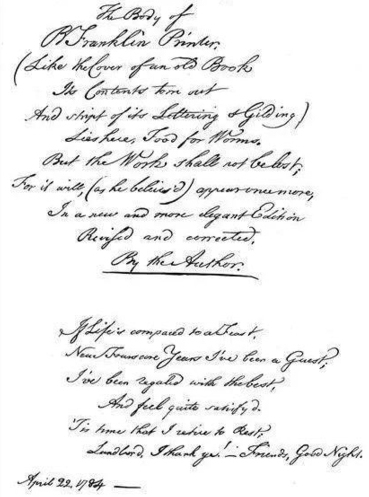 The Body of
B Franklin Printer.
(Like the Cover of an old Book
Its Contents torn out
And stript of its Lettering & Gilding)
Lies here, Food for Worms.
But the Work shall not be lost;
For it will, (as he believ'd) appear once more,
In a new and more elegant Edition
Revised and corrected,
By the Author.
If Life's compared to a Feast,
Near Fourscore Years I've been a Guest;
I've been regaled with the best,
And feel quite satisfy'd.
'Tis time that I retire to Rest;
Landlord, I thank ye! — Friends, Good Night.
April 22. 1784 —